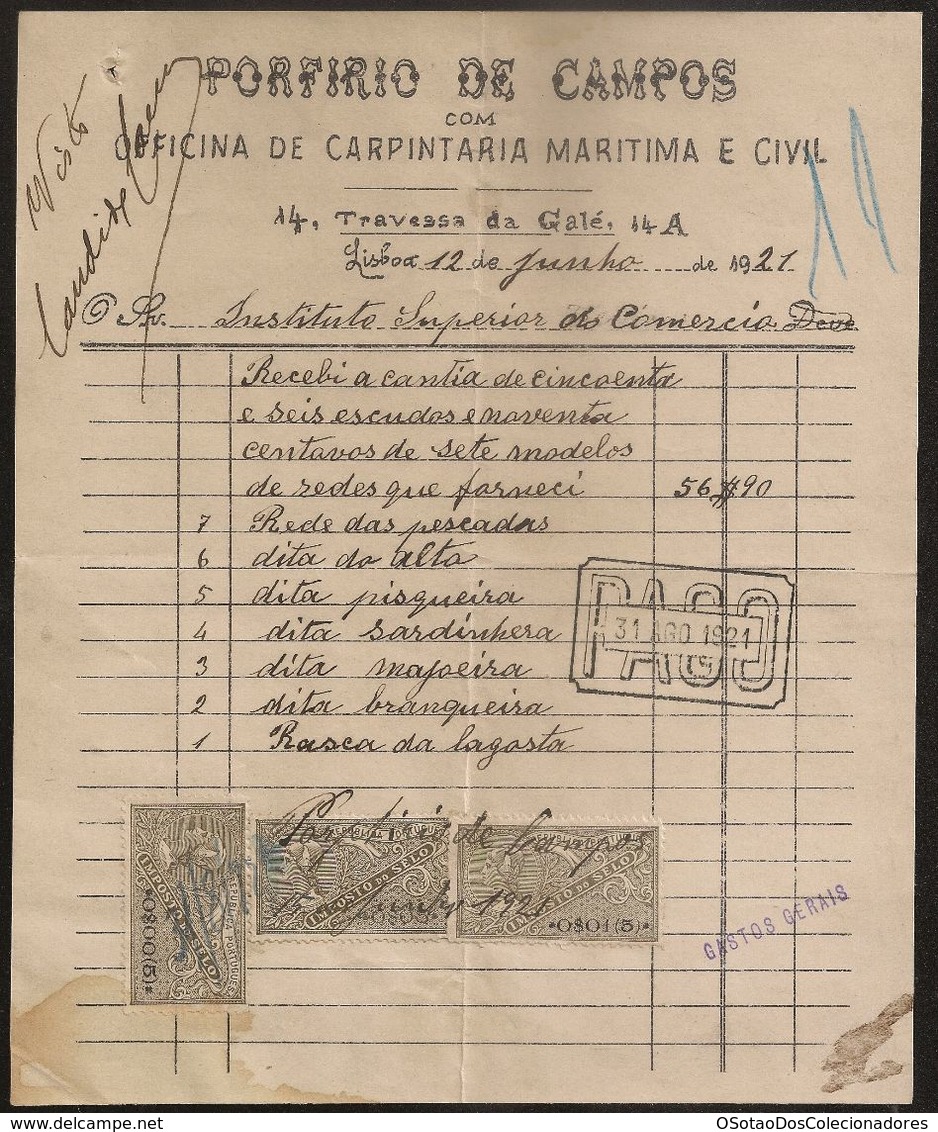 PORFIRIO DE CAMPOS
COM
OFFICINA DE CARPINTARIA MARITIMA E CIVIL
14, Travessa da Galé, 14 A
Lisboa 12 de Junho de 1921
Visto
O Sr. Instituto Superior do Comercio Deve
Recebi a cantia de cincoenta
e seis escudos e noventa
centavos de sete modelos
de redes que forneci 56$90
7 Rede das pescadas
6 dita do alto
5 dita pisqueira
4 dita sardinhera
3 dita majoeira
2 dita branqueira
1 Rasca da lagosta
PAGO
31 AGO 1921
Porfirio de Campos
12 Junho 1921
REPUBLICA PORTUGUESA
IMPOSTO DO SELO
*0$00(5)*
REPUBLICA PORTUGUESA
IMPOSTO DO SELO
IMPOSTO DO SELO
*0$01(5)*
GASTOS GERAIS
DELCAMPE.NET
OSotaoDosColecionadores